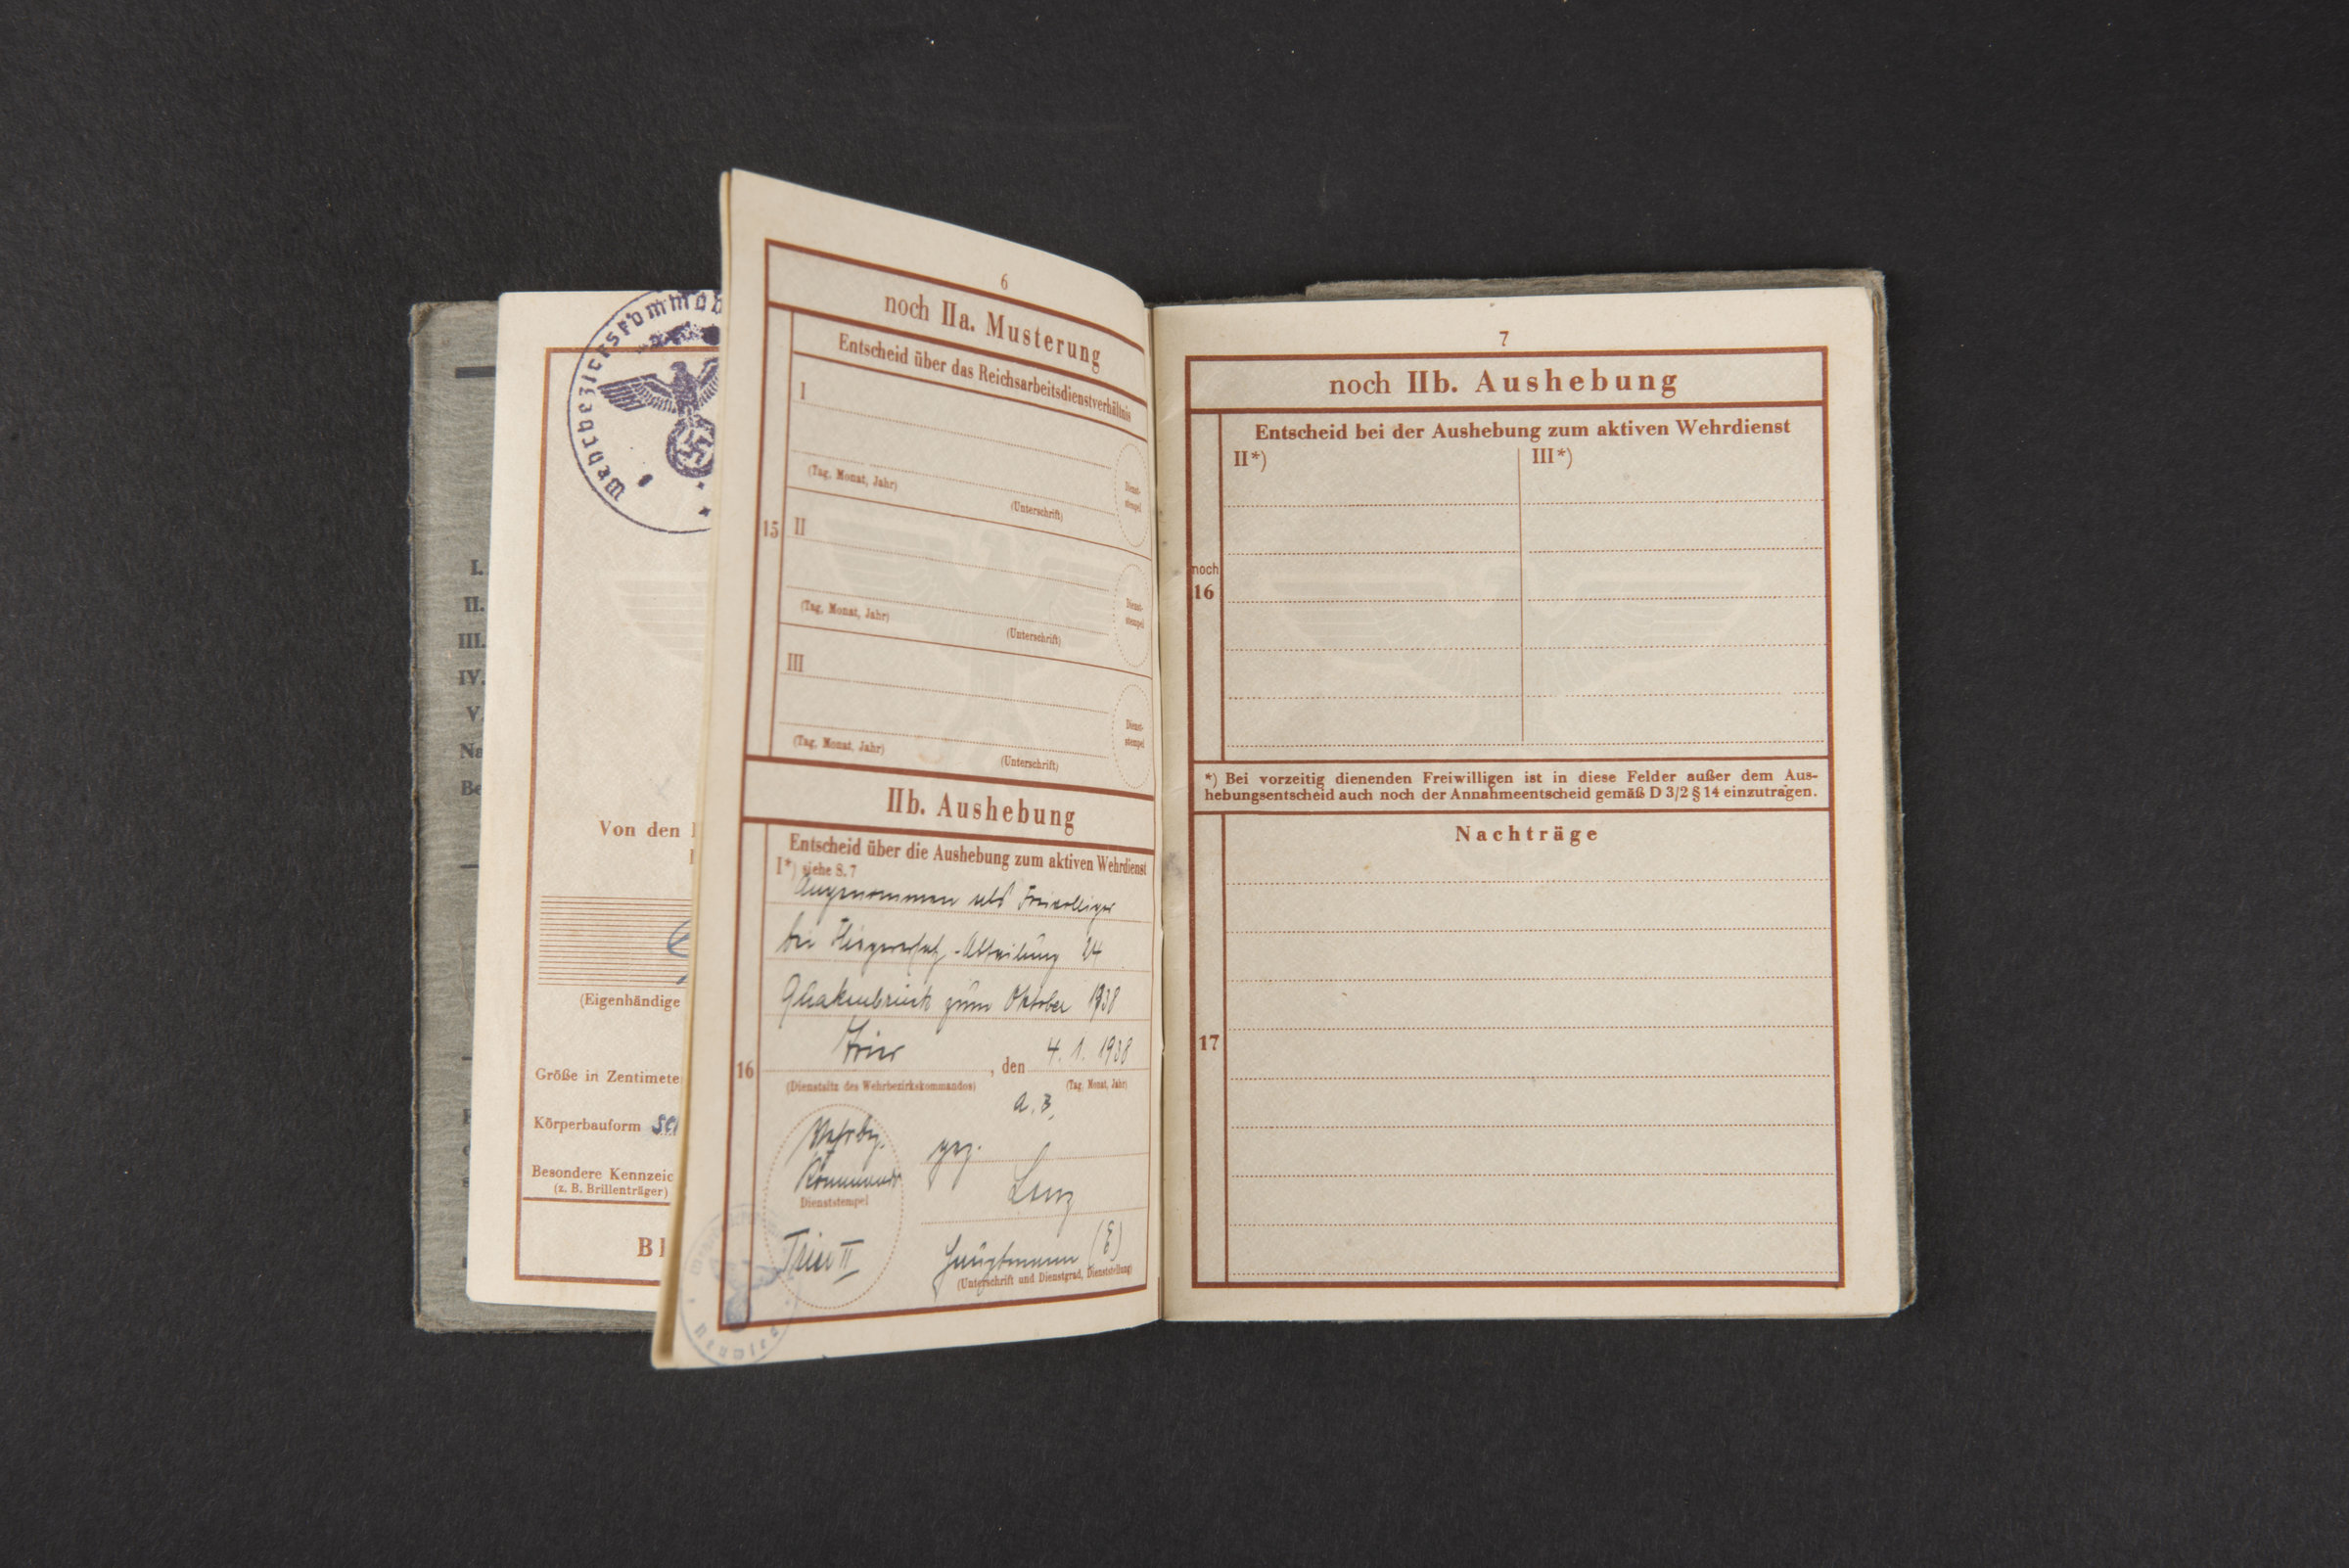 Wehrbezirkskommando
I.
II.
III.
IV.
V.
Na
Be
Von den
(Eigenhändige
Größe in Zentimete
Körperbauform
Besondere Kennzeic
(z. B. Brillenträger)
6
noch IIa. Musterung
Entscheid über das Reichsarbeitsdienstverhältnis
I
(Tag, Monat, Jahr)
(Unterschrift)
Dienst-
stempel
15
II
(Tag, Monat, Jahr)
(Unterschrift)
Dienst-
stempel
III
(Tag, Monat, Jahr)
(Unterschrift)
Dienst-
stempel
IIb. Aushebung
Entscheid über die Aushebung zum aktiven Wehrdienst
I*) siehe S. 7
Angenommen als Freiwilliger
bei Fliegerersatz-Abteilung 24
Quakenbrück zum Oktober 1938
Trier, den 4. 1. 1938
16
(Dienstsitz des Wehrbezirkskommandos) (Tag, Monat, Jahr)
Wehrbz.
gez.
Kommando
Dienststempel
Lenz
Trier II
Hauptmann (E)
(Unterschrift und Dienstgrad, Dienststellung)
7
noch IIb. Aushebung
Entscheid bei der Aushebung zum aktiven Wehrdienst
II*) III*)
noch
16
*) Bei vorzeitig dienenden Freiwilligen ist in diese Felder außer dem Aus-
hebungsentscheid auch noch der Annahmeentscheid gemäß D 3/2 § 14 einzutragen.
Nachträge
17